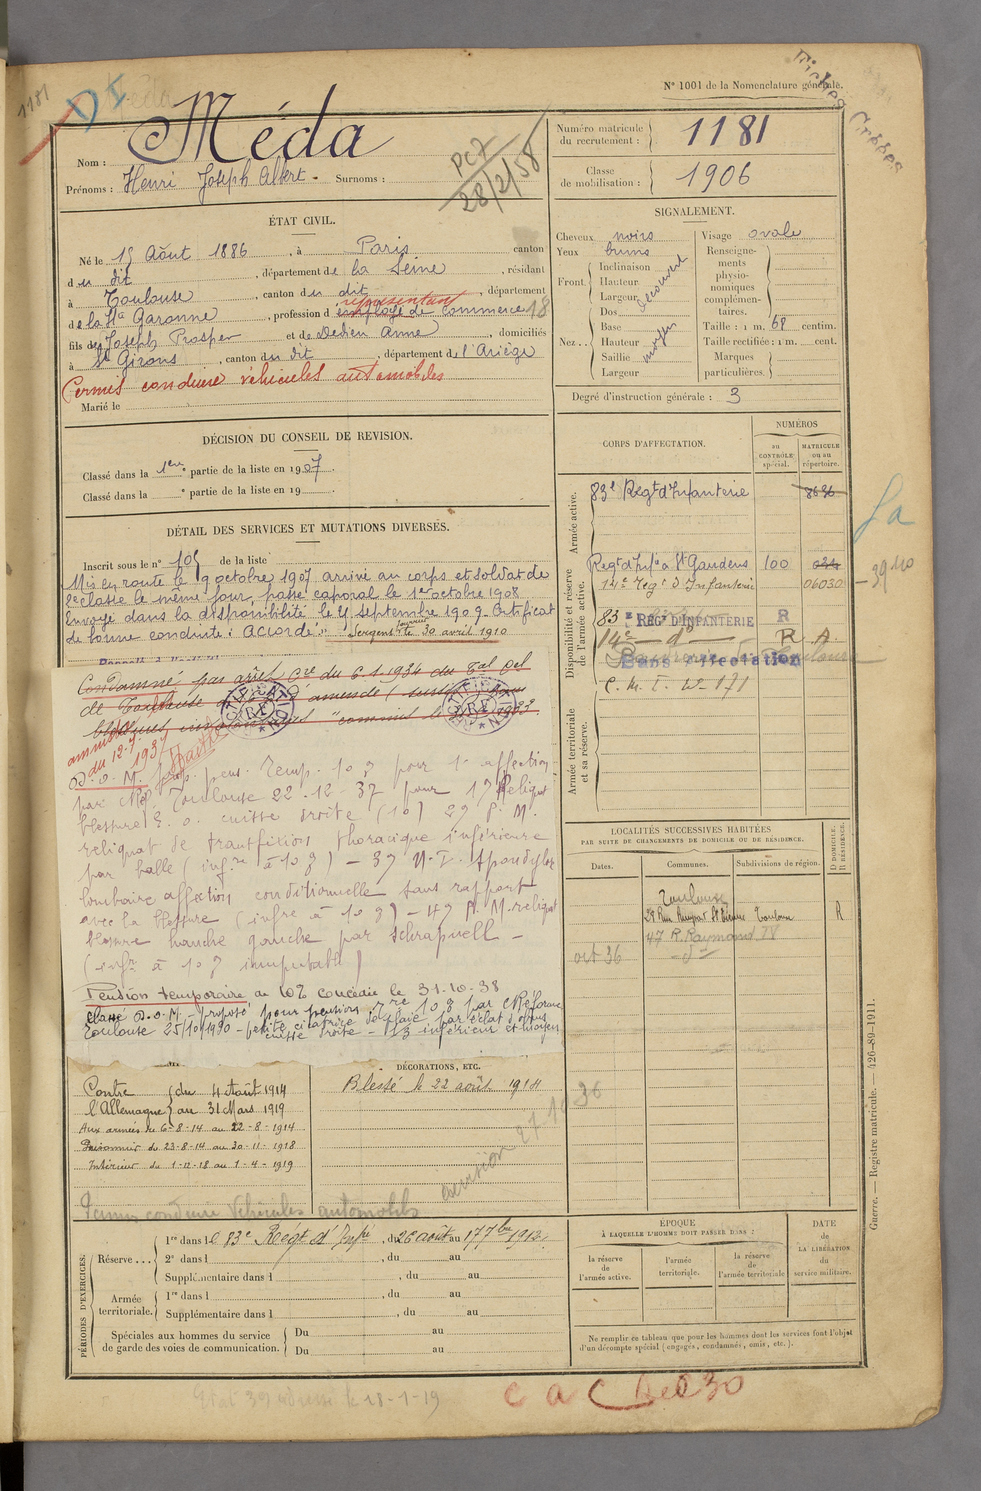 1181
D I
N° 1001 de la Nomenclature générale.
Nom : Méda
Prénoms : Henri Joseph Albert - Surnoms :
PC7
28/2/58
Numéro matricule du recrutement : 1181
Classe de mobilisation : 1906
ÉTAT CIVIL.
Né le 15 Août 1886, à Paris canton
du dit, département de la Seine, résidant
à Toulouse, canton du dit, département
représentant
de la Hte Garonne, profession d'employé de commerce 18
fils de Joseph Prosper et de Dedieu Anne, domiciliés
à St Girons, canton du dit, département de l'Ariège
Permis conduire véhicules automobiles
Marié le
SIGNALEMENT.
Cheveux noirs
Yeux bruns
Front. Inclinaison
Hauteur
Largeur
découvert
Nez... Dos
Base
Hauteur
Saillie
Largeur
moyen
Visage ovale
Renseignements physionomiques complémentaires.
Taille : 1 m. 68 centim.
Taille rectifiée : 1 m. cent.
Marques particulières.
Degré d'instruction générale : 3
DÉCISION DU CONSEIL DE REVISION.
Classé dans la 1ere partie de la liste en 1907.
Classé dans la e partie de la liste en 19
DÉTAIL DES SERVICES ET MUTATIONS DIVERSES.
Inscrit sous le n° 105 de la liste
Mis en route le 9 octobre 1907 arrivé au corps et soldat de
2e classe le même jour, passé caporal le 1er octobre 1908
Envoyé dans la disponibilité le 25 septembre 1909. Certificat
de bonne conduite : "Accordé". Sergent fourrier le 30 avril 1910
Condamné par arrêt Cre du 6.1.1934 du
de Toulouse amende
1933.
amnistié
du 12.7.
1937
RECTIFICATION
R.F.
D.O.M. prop. pens. temp. 10 % pour 1° affection
par Toulouse 22-12-37 pour 1° Reliquat
blessure cuisse droite (10) 2° P. M.
reliquat de transfixion thoracique inférieure
par balle (infre à 10 %) - 3° N.I. Spondylose
lombaire affection conditionnelle sans rapport
avec la blessure (infre à 10 %) - 4° P. M. reliquat
blessure hanche gauche par schrapnell -
(infre à 10 % imputable)
Pension temporaire de 10% concédée le 31-10-38
Classé D.O.M. - proposé pour pension 10 % par Réforme
Toulouse 25/10/1930 - petite cicatrice de plaie par éclat d'obus
cuisse droite - 1/3 inférieur et moyen
Contre l'Allemagne du 4 Août 1914
au 31 Mars 1919
Aux armées du 6-8-14 au 22-8-1914
Prisonnier du 23-8-14 au 30-11-1918
Intérieur du 1-12-18 au 1-4-1919
DÉCORATIONS, ETC.
Blessé le 22 août 1914
27 10 36
Permis conduire véhicules automobiles
PÉRIODES D'EXERCICES.
Réserve... 1re dans le 83e Régt d'Infrie, du 26 août au 17 7bre 1912.
2e dans l , du au
Supplémentaire dans l , du au
Armée territoriale. 1re dans l , du au
Supplémentaire dans l , du au
Spéciales aux hommes du service de garde des voies de communication. Du au
Du au
CORPS D'AFFECTATION.
NUMÉROS
au CONTRÔLE spécial.
MATRICULE ou au répertoire.
Armée active.
83e Régt d'Infanterie 8636
Disponibilité et réserve de l'armée active.
Régt d'Infie à St Gaudens 100
14e Régt d'Infanterie 06030
83e REGt D'INFANTERIE R
14e - do - R A
Sans affectation
C. M. I. W-171
Armée territoriale et sa réserve.
LOCALITÉS SUCCESSIVES HABITÉES
PAR SUITE DE CHANGEMENTS DE DOMICILE OU DE RÉSIDENCE.
D DOMICILE. R RÉSIDENCE.
Dates. Communes. Subdivisions de région.
Toulouse
29 Rue Rempart St Etienne Toulouse R
47 R. Raymond IV
oct 36 - do -
ÉPOQUE
À LAQUELLE L'HOMME DOIT PASSER DANS :
la réserve de l'armée active.
l'armée territoriale.
la réserve de l'armée territoriale
DATE DE LA LIBÉRATION du service militaire.
Ne remplir ce tableau que pour les hommes dont les services font l'objet
d'un décompte spécial (engagés, condamnés, omis, etc.).
Guerre. — Registre matricule. — 426-89-1911.